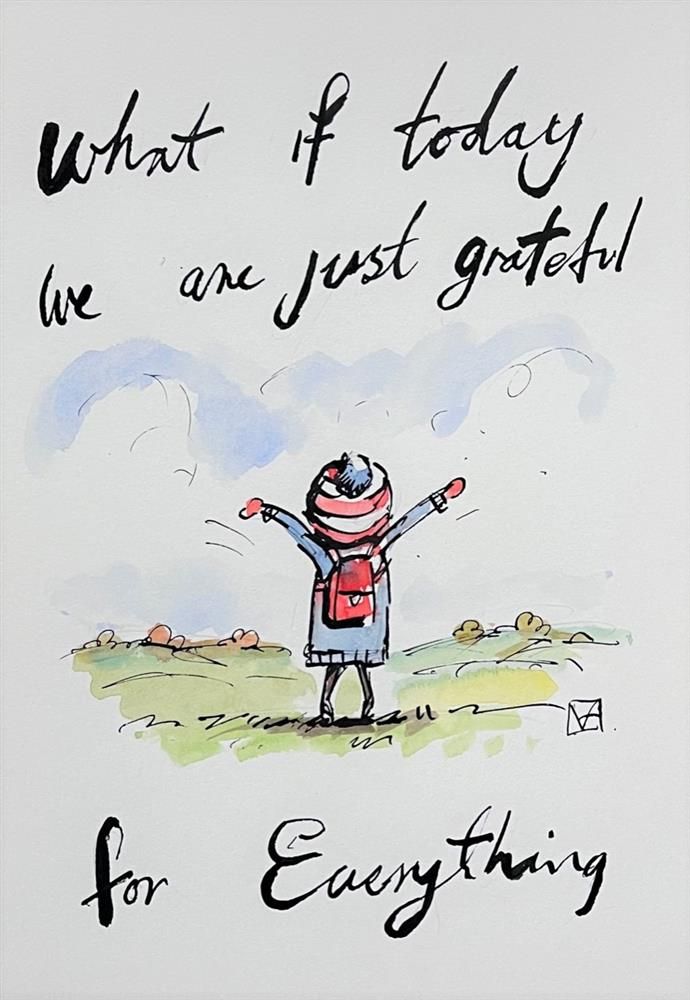 What if today
we are just grateful
for Everything